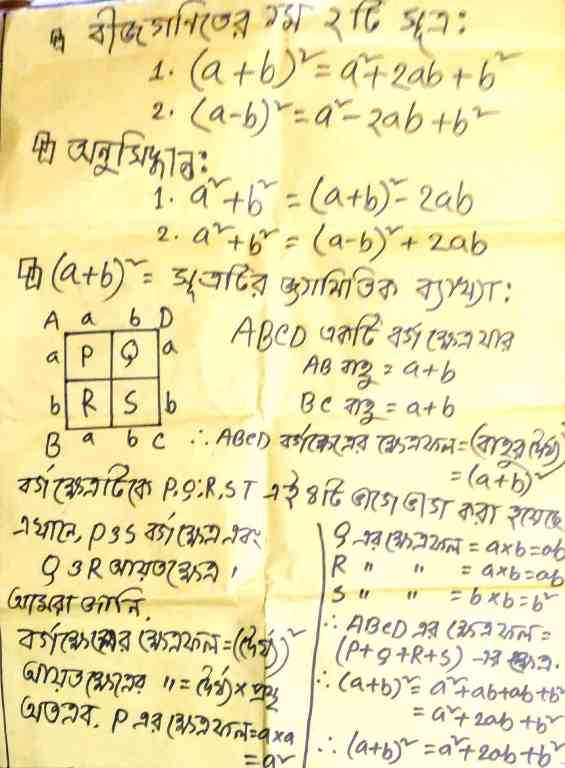 বীজগণিতের ১ম ২টি সূত্র:
1. (a+b)² = a²+2ab+b²
2. (a-b)² = a²-2ab+b²
অনুসিদ্ধান্ত:
1. a²+b² = (a+b)²-2ab
2. a²+b² = (a-b)²+2ab
(a+b)² = সূত্রটির জ্যামিতিক ব্যাখ্যা:
A a b D
a P Q a
b R S b
B a b C
ABCD একটি বর্গক্ষেত্র যার
AB বাহু = a+b
BC বাহু = a+b
∴ ABCD বর্গক্ষেত্রের ক্ষেত্রফল = (বাহুর দৈর্ঘ্য)²
= (a+b)²
বর্গক্ষেত্রটিকে P,Q,R,ST এই ৪টি ভাগে ভাগ করা হয়েছে
এখানে, P ও S বর্গক্ষেত্র এবং
Q ও R আয়তক্ষেত্র।
আমরা জানি,
বর্গক্ষেত্রের ক্ষেত্রফল = (দৈর্ঘ্য)²
আয়তক্ষেত্রের " = দৈর্ঘ্য × প্রস্থ
অতএব, P এর ক্ষেত্রফল = a×a
= a²
Q এর ক্ষেত্রফল = a×b = ab
R " " = a×b = ab
S " " = b×b = b²
∴ ABCD এর ক্ষেত্রফল =
(P+Q+R+S) -এর ক্ষেত্র.
∴ (a+b)² = a²+ab+ab+b²
= a²+2ab+b²
∴ (a+b)² = a²+2ab+b²